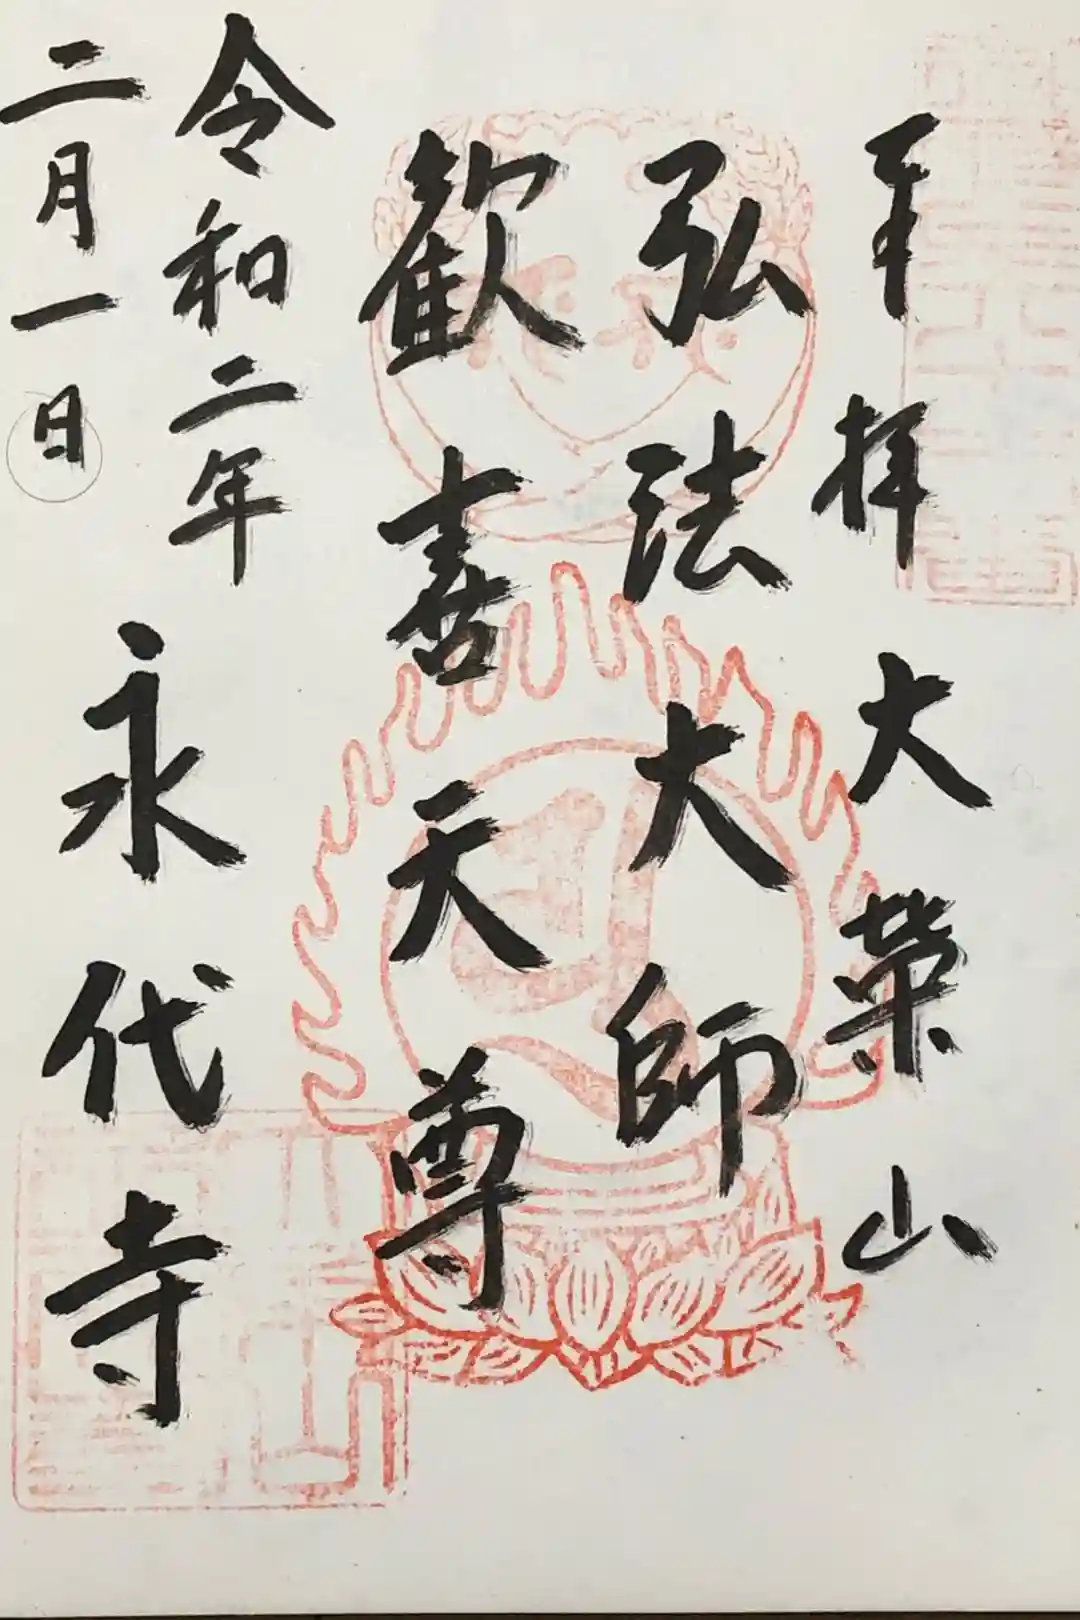 奉拝 大栄山
弘法大師
歓喜天尊
令和二年
二月一日
永代寺